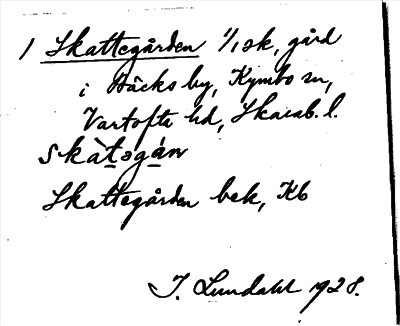 1 Skattegården 1/1 sk, gård
i Bäcks by, Kymbo sn,
Vartofta hd, Skarab. l.
skàtəgàn
Skattegården bek, Kb
I. Lundahl 1928.